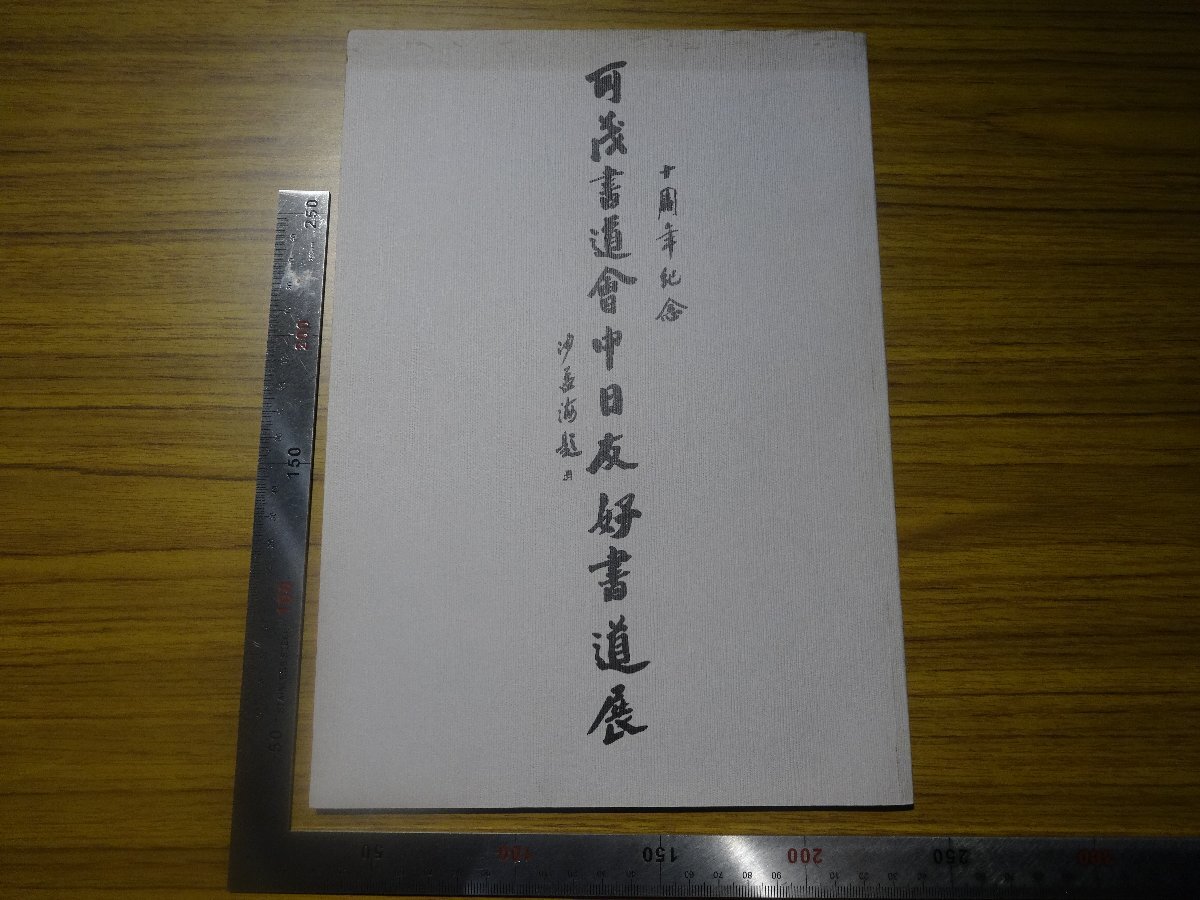 十周年紀念
可茂書道會中日友好書道展
沙孟海題
250
200
150
100
50
50
100
150
200
250
300